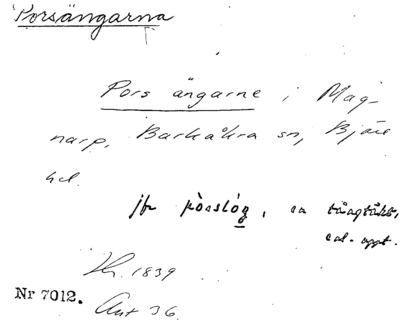 Porsängarna
Pors ängarne i Mag-
narp, Barkåkra sn, Bjäre
hd.
jfr pòrslóg, en tångtäkt,
enl. uppt.
Hr. 1839
Nr 7012.
Ant 36.